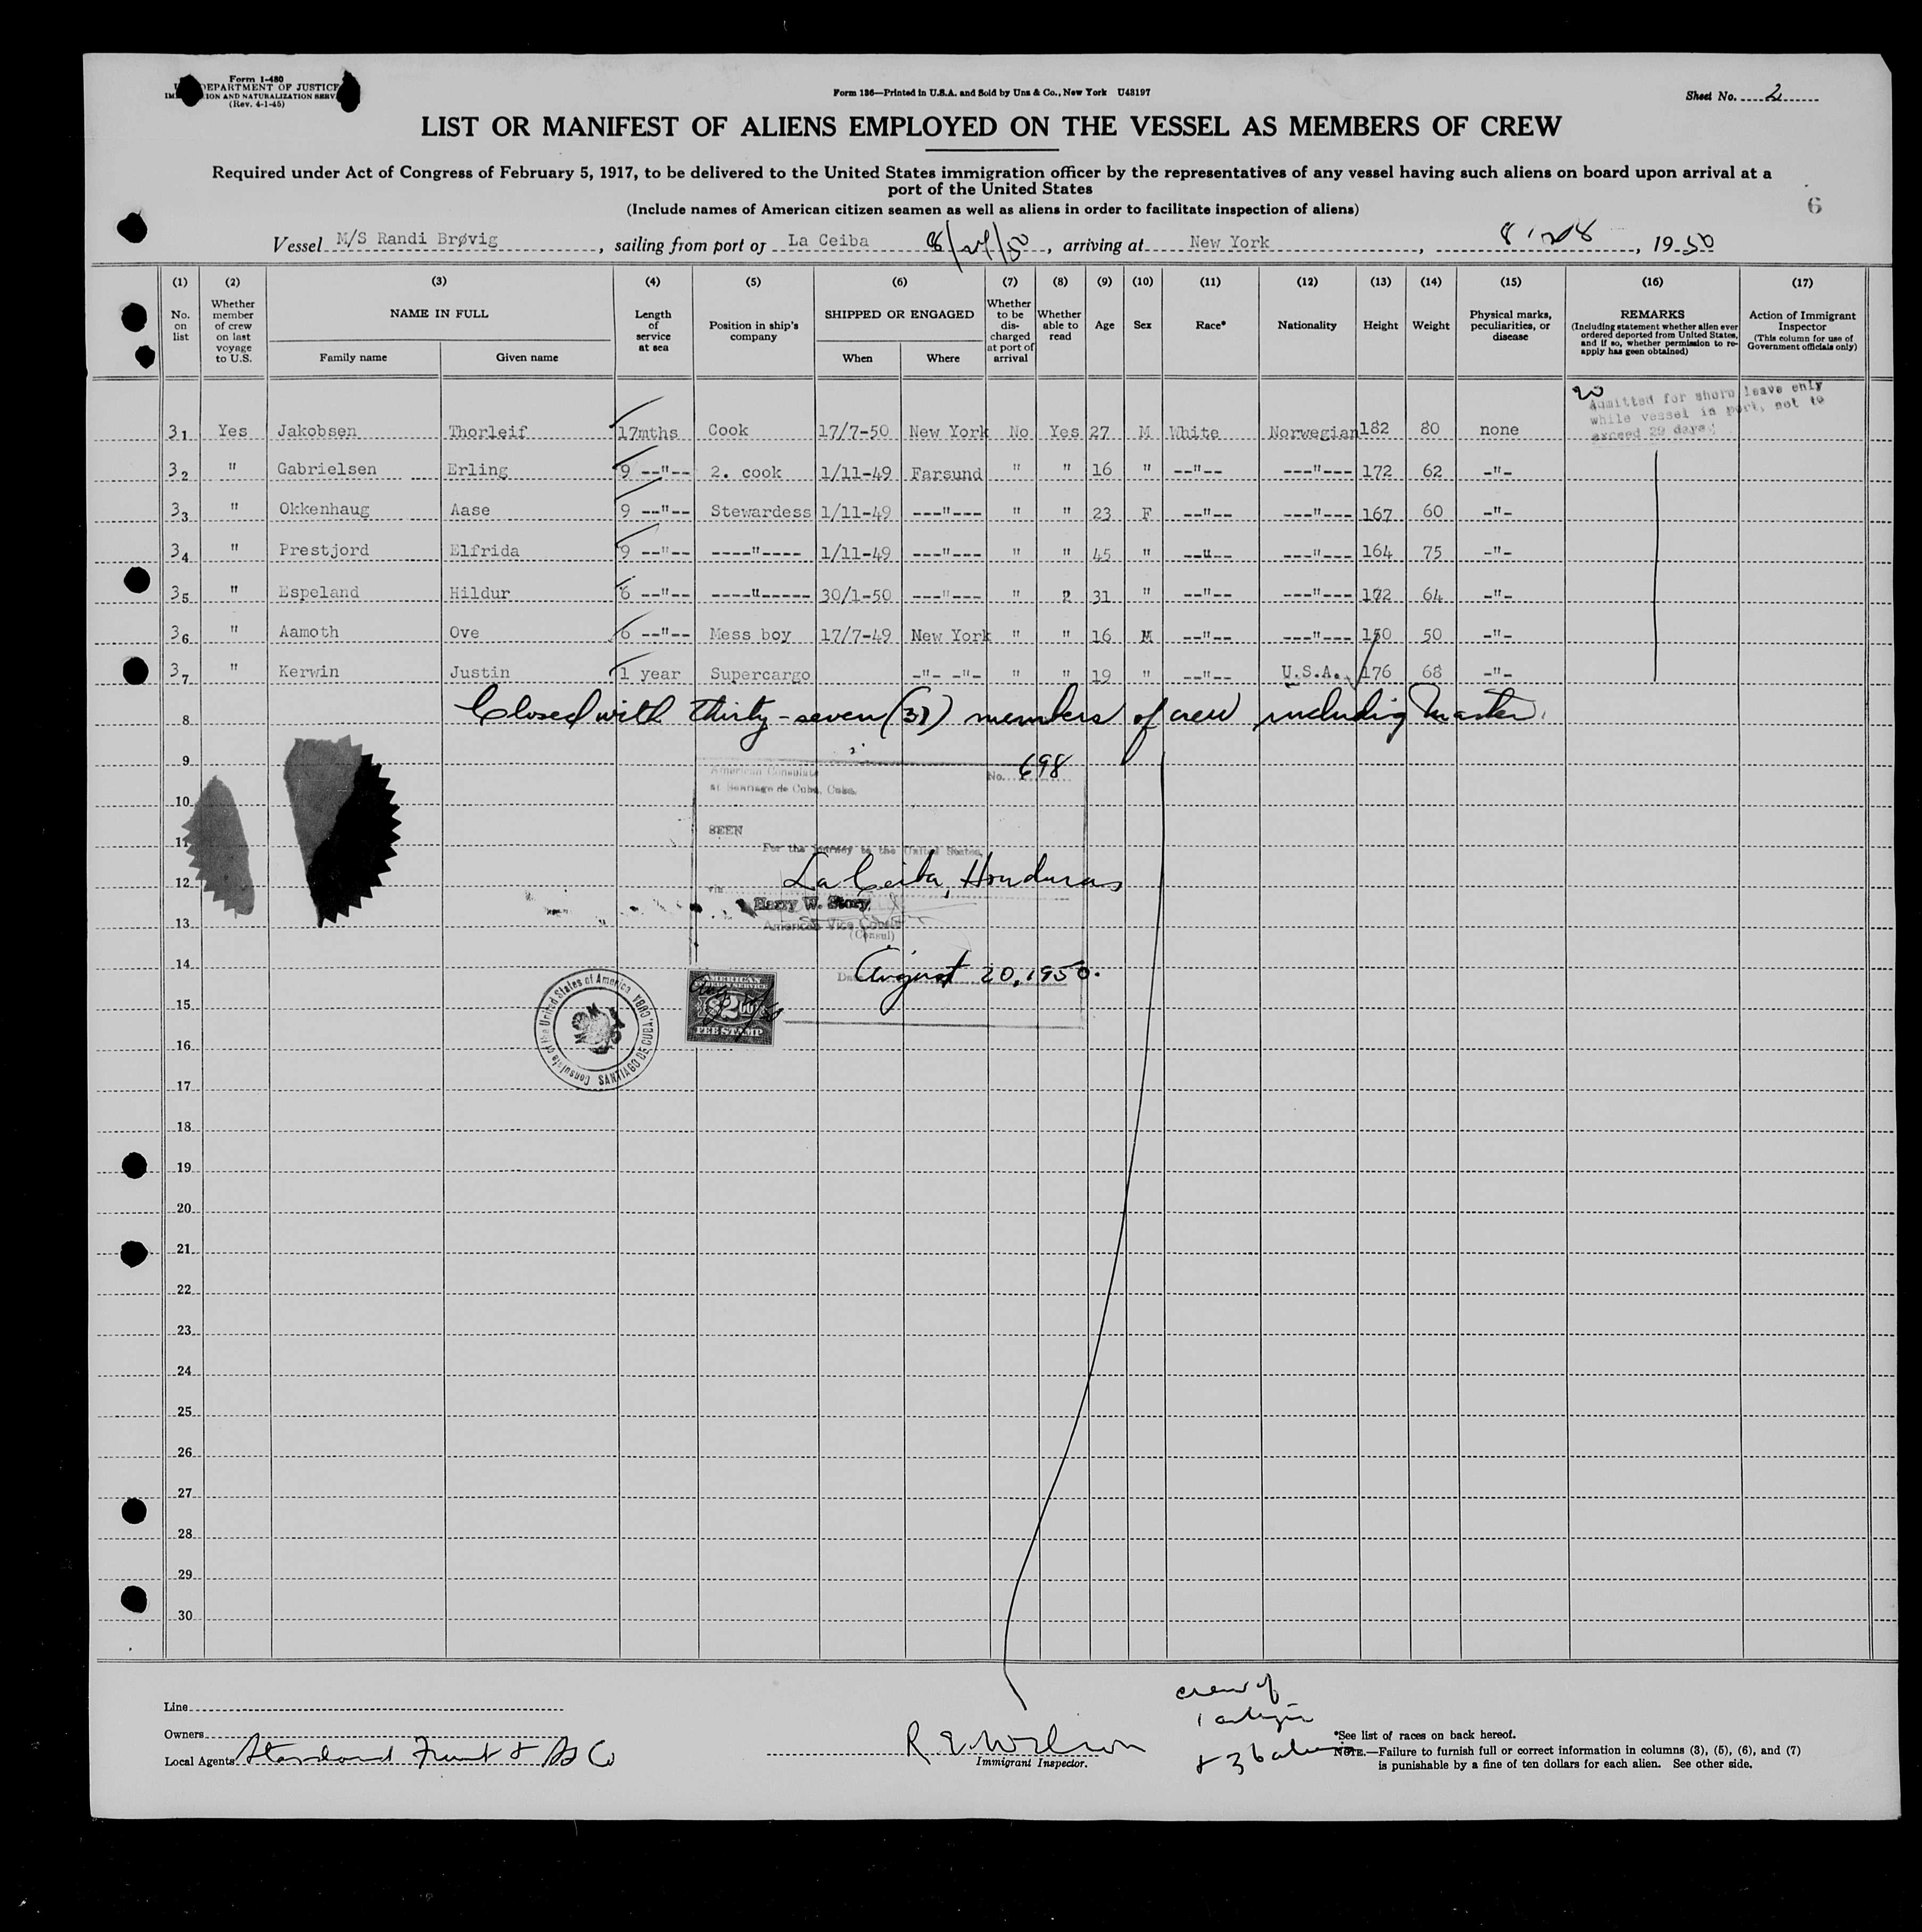 Form I-480
DEPARTMENT OF JUSTICE
ION AND NATURALIZATION SERV
(Rev. 4-1-45)
Form 136—Printed in U.S.A. and Sold by Unz & Co., New York U48197
Sheet No. 2
LIST OR MANIFEST OF ALIENS EMPLOYED ON THE VESSEL AS MEMBERS OF CREW
Required under Act of Congress of February 5, 1917, to be delivered to the United States immigration officer by the representatives of any vessel having such aliens on board upon arrival at a
port of the United States
(Include names of American citizen seamen as well as aliens in order to facilitate inspection of aliens)
6
Vessel M/S Randi Brøvig, sailing from port of La Ceiba, arriving at New York, 1950
(1) (2) (3) (4) (5) (6) (7) (8) (9) (10) (11) (12) (13) (14) (15) (16) (17)
No. on list
Whether member of crew on last voyage to U.S.
NAME IN FULL
Family name
Given name
Length of service at sea
Position in ship's company
SHIPPED OR ENGAGED
When
Where
Whether to be discharged at port of arrival
Whether able to read
Age
Sex
Race*
Nationality
Height
Weight
Physical marks, peculiarities, or disease
REMARKS
(Including statement whether alien ever ordered deported from United States, and if so, whether permission to re-apply has geen obtained)
Action of Immigrant Inspector
(This column for use of Government officials only)
20
Admitted for shore leave only
while vessel in port, not to
exceed 29 days
31 Yes Jakobsen Thorleif 17mths Cook 17/7-50 New York No Yes 27 M White Norwegian 182 80 none
32 " Gabrielsen Erling 9 --"-- 2. cook 1/11-49 Farsund " " 16 " --"-- ---"--- 172 62 -"-
33 " Okkenhaug Aase 9 --"-- Stewardess 1/11-49 ---"--- " " 23 F --"-- ---"--- 167 60 -"-
34 " Prestjord Elfrida 9 --"-- ----"---- 1/11-49 ---"--- " " 45 " --"-- ---"--- 164 75 -"-
35 " Espeland Hildur 6 --"-- ----"----- 30/1-50 ---"--- " 2 31 " --"-- ---"--- 172 64 -"-
36 " Aamoth Ove 6 --"-- Mess boy 17/7-49 New York " " 16 M --"-- ---"--- 150 50 -"-
37 " Kerwin Justin 1 year Supercargo -"- -"- " " 19 " --"-- U.S.A. 176 68 -"-
Closed with thirty-seven (37) members of crew including Master.
8
9
American Consulate
No. 698
at Santiago de Cuba, Cuba.
10
SEEN
11
For the journey to the United States,
12
via La Ceiba, Honduras
Harry W. Story
13
American Vice Consul
(Consul)
14
Date August 20, 1950.
Consulate of the United States of America
SANTIAGO DE CUBA, CUBA
AMERICAN
FOREIGN SERVICE
$2.00
FEE STAMP
15
16
17
18
19
20
21
22
23
24
25
26
27
28
29
30
Line
Owners
Local Agents Standard Fruit & SS Co
R E Wilson
Immigrant Inspector.
crew of
*See list of races on back hereof.
NOTE.—Failure to furnish full or correct information in columns (3), (5), (6), and (7)
is punishable by a fine of ten dollars for each alien. See other side.